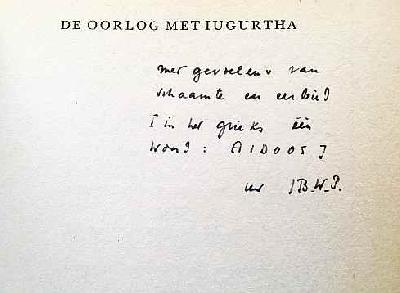 DE OORLOG MET IUGURTHA
met gevoelens van
schaamte en eerbied
[in het grieks één
woord: AIDOOS]
uw JB.W.P.